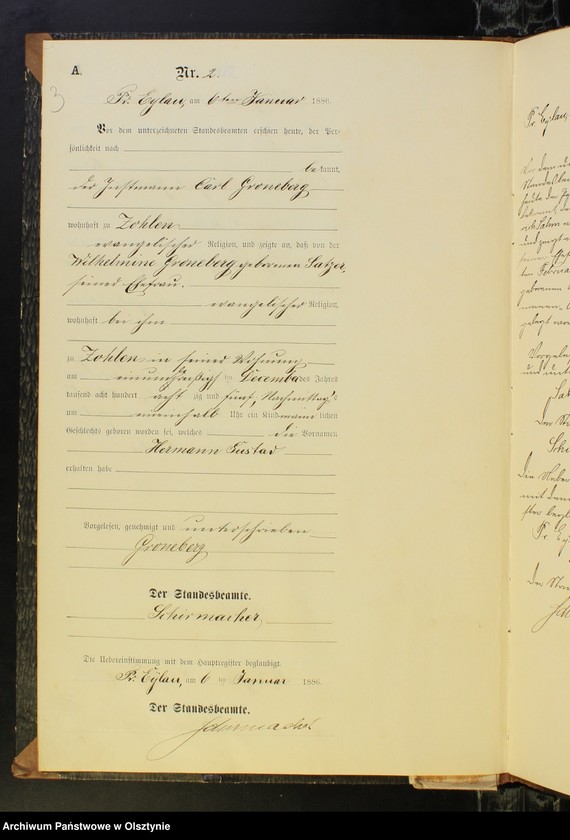 A.
Nr. 2.
3
Pr. Eylau, am 6ten Januar 1886.
Vor dem unterzeichneten Standesbeamten erschien heute, der Per-
sönlichkeit nach
bekannt,
der Instmann Carl Groneberg
wohnhaft zu Zohlen
evangelischer Religion, und zeigte an, daß von der
Wilhelmine Groneberg geborenen Satzer,
seiner Ehefrau.
evangelischer Religion,
wohnhaft bei ihm
zu Zohlen in seiner Wohnung
am einunddreißigsten Dezember des Jahres
tausend acht hundert acht zig und fünf, Nachmittags
um einenhalb Uhr ein Kind männlichen
Geschlechts geboren worden sei, welches die Vornamen
Hermann Gustav
erhalten habe
Vorgelesen, genehmigt und unterschrieben
Groneberg
Der Standesbeamte.
Schirmacher
Die Uebereinstimmung mit dem Hauptregister beglaubigt.
Pr. Eylau, am 6 ten Januar 1886.
Der Standesbeamte.
Schirmacher
Pr. Eylau,
Archiwum Państwowe w Olsztynie